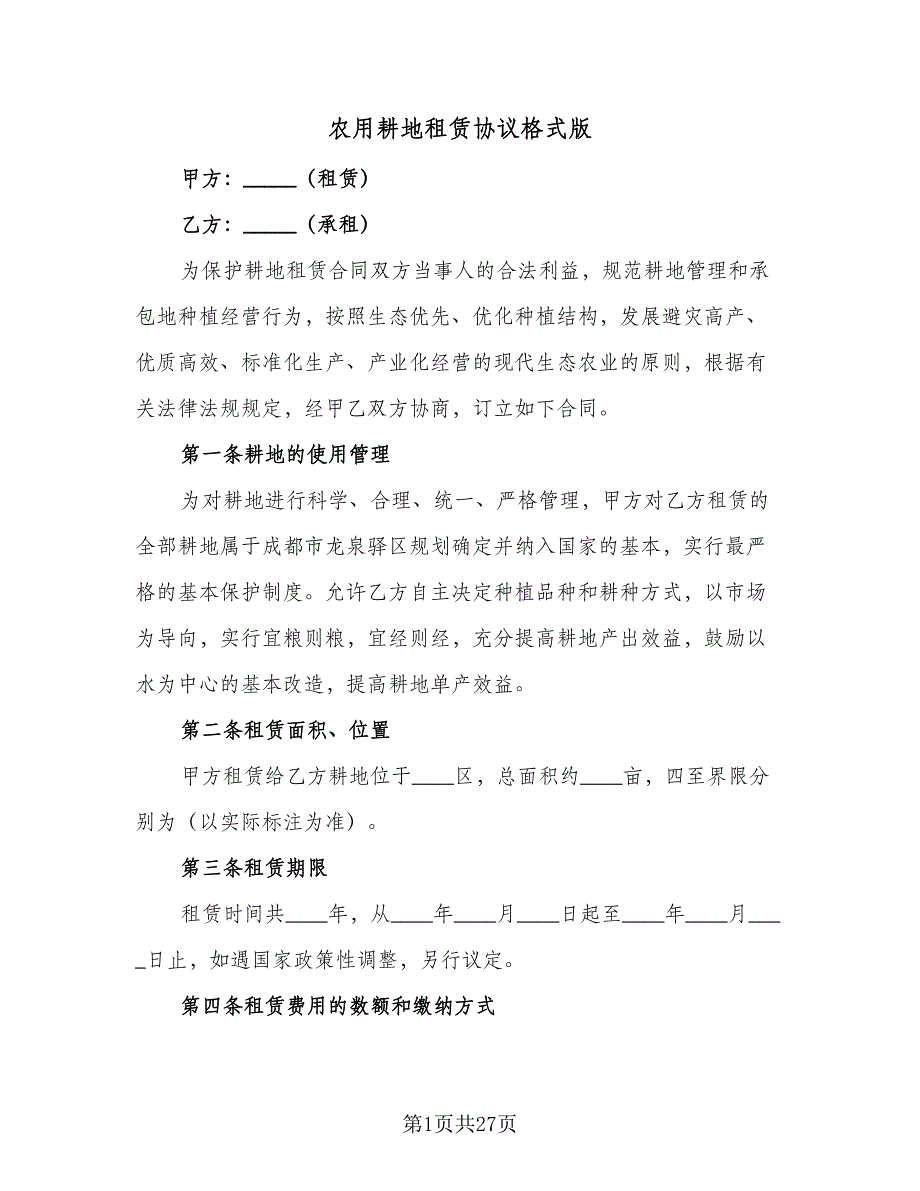 农用耕地租赁协议格式版
甲方：_____（租赁）
乙方：_____（承租）
为保护耕地租赁合同双方当事人的合法利益，规范耕地管理和承
包地种植经营行为，按照生态优先、优化种植结构，发展避灾高产、
优质高效、标准化生产、产业化经营的现代生态农业的原则，根据有
关法律法规规定，经甲乙双方协商，订立如下合同。
第一条耕地的使用管理
为对耕地进行科学、合理、统一、严格管理，甲方对乙方租赁的
全部耕地属于成都市龙泉驿区规划确定并纳入国家的基本，实行最严
格的基本保护制度。允许乙方自主决定种植品种和耕种方式，以市场
为导向，实行宜粮则粮，宜经则经，充分提高耕地产出效益，鼓励以
水为中心的基本改造，提高耕地单产效益。
第二条租赁面积、位置
甲方租赁给乙方耕地位于____区，总面积约____亩，四至界限分
别为（以实际标注为准）。
第三条租赁期限
租赁时间共____年，从____年____月____日起至____年____月___
_日止，如遇国家政策性调整，另行议定。
第四条租赁费用的数额和缴纳方式
第1页共27页